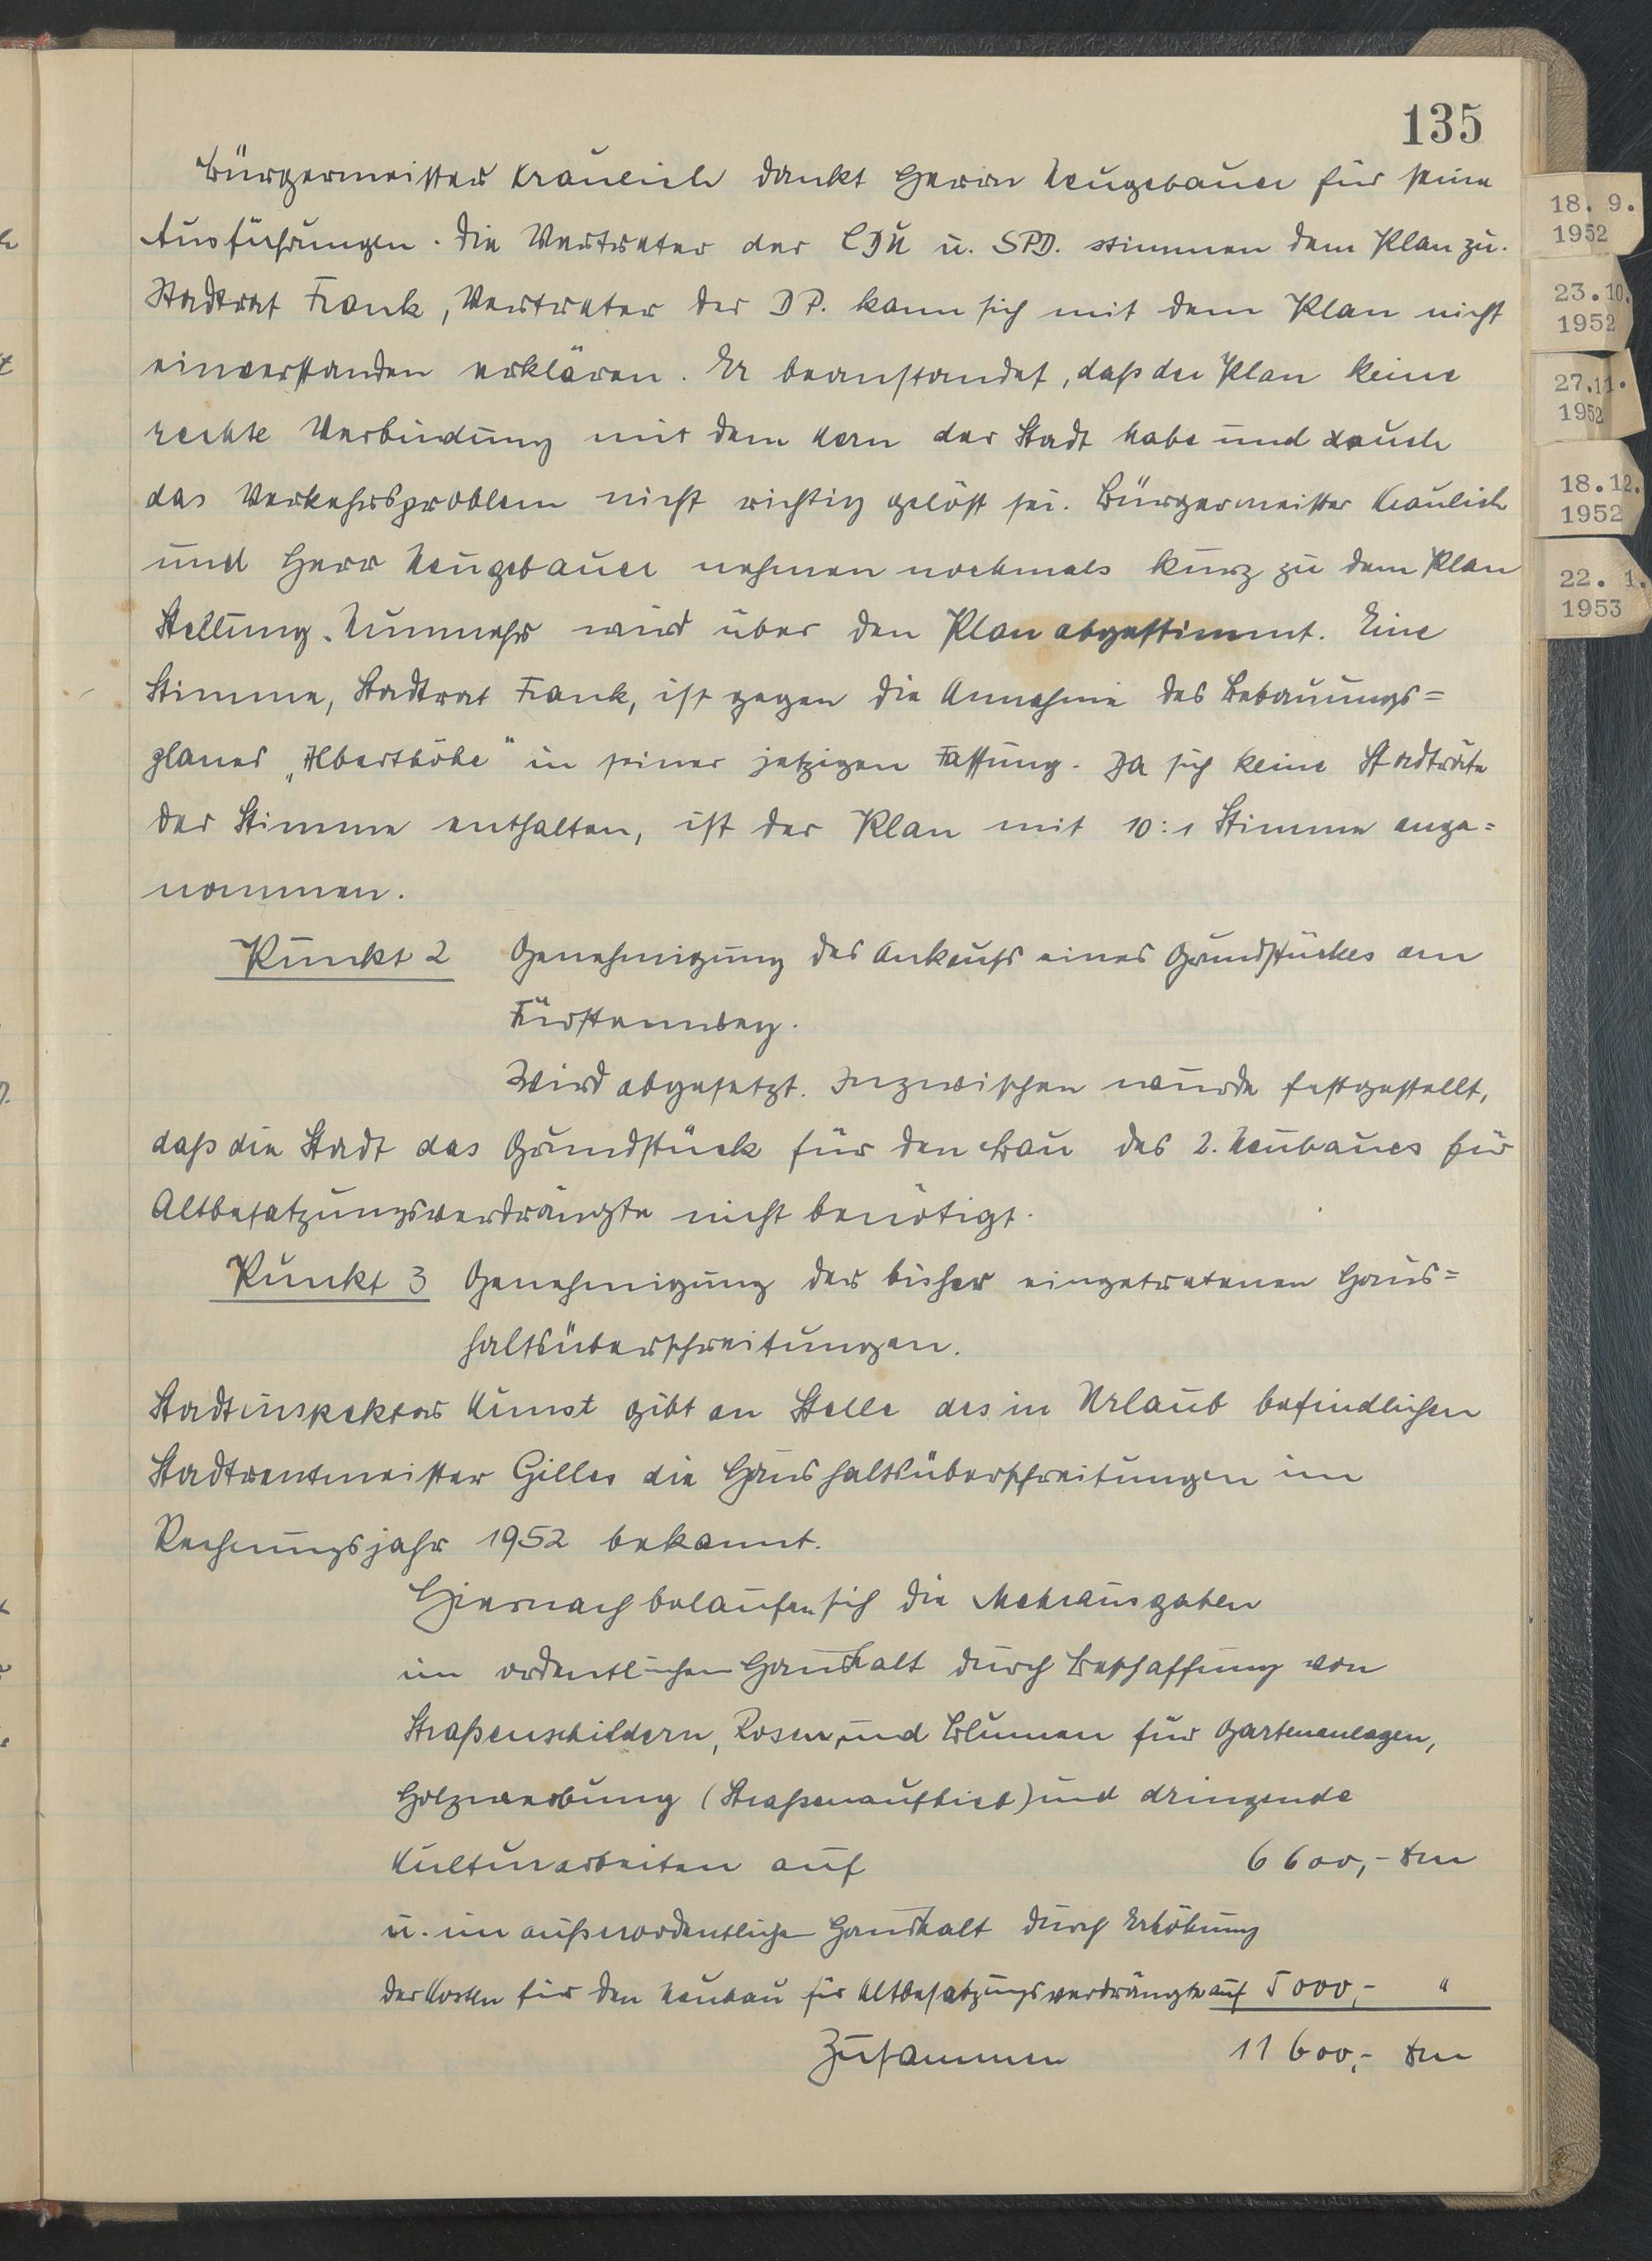 135
Bürgermeister Kraulich dankt Herrn Neugebauer für seine
Ausführungen. Die Vertreter der CDU u. SPD. stimmen dem Plan zu.
Stadtrat Frank, Vertreter der DP. kann sich mit dem Plan nicht
einverstanden erklären. Er beanstandet, daß der Plan keine
rechte Verbindung mit dem Kern der Stadt habe und auch
das Verkehrsproblem nicht richtig gelöst sei. Bürgermeister Kraulich
und Herr Neugebauer nehmen nochmals kurz zu dem Plan
Stellung. Nunmehr wird über den Plan abgestimmt. Eine
Stimme, Stadtrat Frank, ist gegen die Annahme des Bebauungs=
planes „Alberthöhe" in seiner jetzigen Fassung. Da sich keine Stadträte
der Stimme enthalten, ist der Plan mit 10:1 Stimme ange=
nommen.
Punkt 2 Genehmigung des Ankaufs eines Grundstückes am
Fürstenweg.
Wird abgesetzt. Inzwischen wurde festgestellt,
daß die Stadt das Grundstück für den Bau des 2. Neubaues für
Altbesatzungsverdrängte nicht benötigt.
Punkt 3 Genehmigung der bisher eingetretenen Haus=
haltsüberschreitungen.
Stadtinspektor Kunst gibt an Stelle des in Urlaub befindlichen
Stadtrentmeister Gilles die Haushaltsüberschreitungen im
Rechnungsjahr 1952 bekannt.
Hiernach belaufen sich die Mehrausgaben
im ordentlichen Haushalt durch Beschaffung von
Straßenschildern, Rosen und Blumen für Gartenanlagen,
Holzwerbung (Straßenaufhieb) und dringende
Kulturarbeiten auf 6 600,- DM
u. im außerordentlichen Haushalt durch Erhöhung
der Kosten für den Neubau für Altbesatzungsverdrängte auf 5 000,- "
Zusammen 11 600,- DM
18. 9.
1952
23.10.
1952
27.11.
1952
18.12.
1952
22. 1.
1953